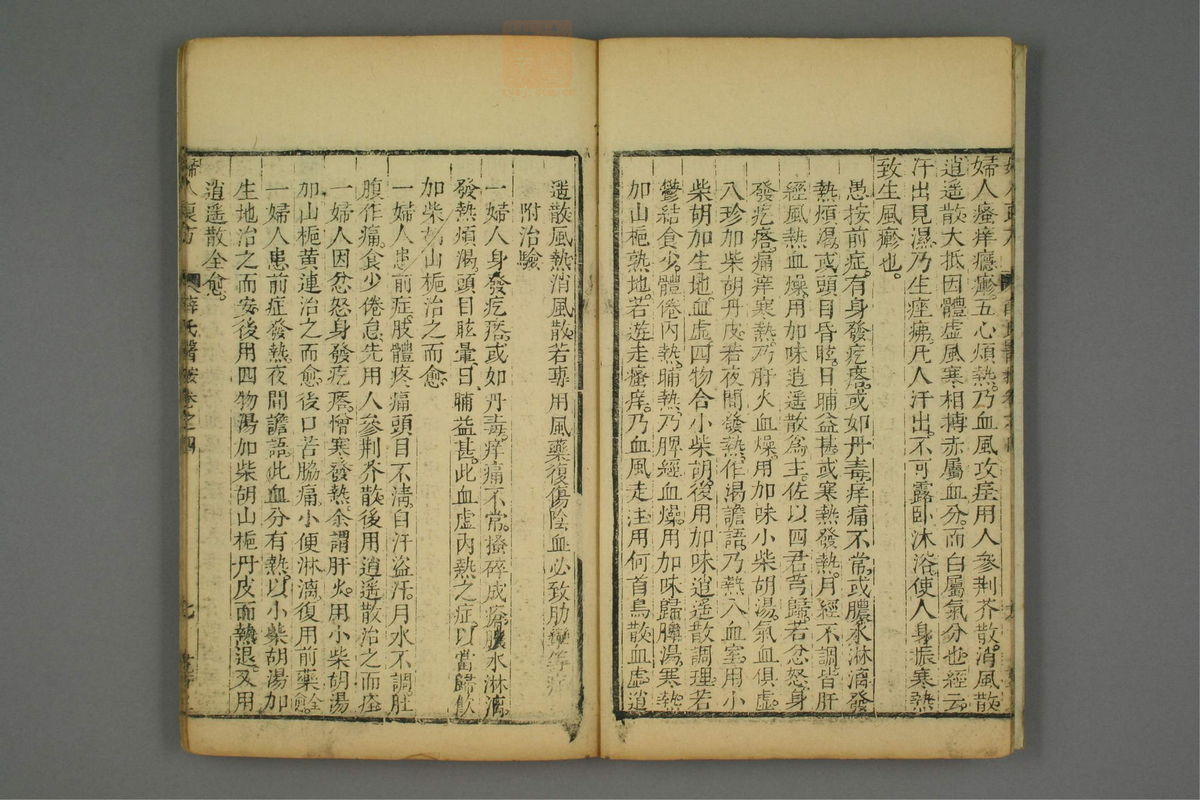 婦人瘙痒癮疹五心煩熱乃血風攻疰用人參荆芥散消風散
逍遥散大抵因體虚風寒相搏赤屬血分而白屬氣分也經云
汗出見濕乃生痤疿凡人汗出不可露卧沐浴使人身振寒熱
致生風疹也
愚按前症有身發疙瘩或如丹毒痒痛不常或膿水淋漓發
熱煩渴或頭目昏眩日晡益甚或寒熱發熱月經不調皆肝
經風熱血燥用加味逍遥散爲主佐以四君芎歸若忿怒身
發疙瘩痛痒寒熱乃肝火血燥用加味小柴胡湯氣血俱虚
八珍加柴胡丹皮若夜間發熱作渴譫語乃熱入血室用小
柴胡加生地血虚四物合小柴胡後用加味逍遥散調理若
鬱結食少體倦内熱晡熱乃脾經血燥用加味歸脾湯寒熱
加山梔熟地若遊走瘙痒乃血風走注用何首烏散血虚逍
遥散風熱消風散若專用風藥復傷陰血必致肋攣等症
附治驗
一婦人身發疙瘩或如丹毒痒痛不常搔碎成瘡膿水淋漓
發熱煩渴頭目眩暈日晡益甚此血虚内熱之症以當歸飲
加柴胡山梔治之而愈
一婦人患前症肢體疼痛頭目不清自汗盗汗月水不調肚
腹作痛食少倦怠先用人參荆芥散後用逍遥散治之而痊
一婦人因忿怒身發疙瘩憎寒發熱余謂肝火用小柴胡湯
加山梔黄連治之而愈後口苦脇痛小便淋漓復用前藥全愈
一婦人患前症發熱夜間譫語此血分有熱以小柴胡湯加
生地治之而安後用四物湯加柴胡山梔丹皮而熱退又用
逍遥散全愈
婦人良方
薛氏醫按卷之四
七